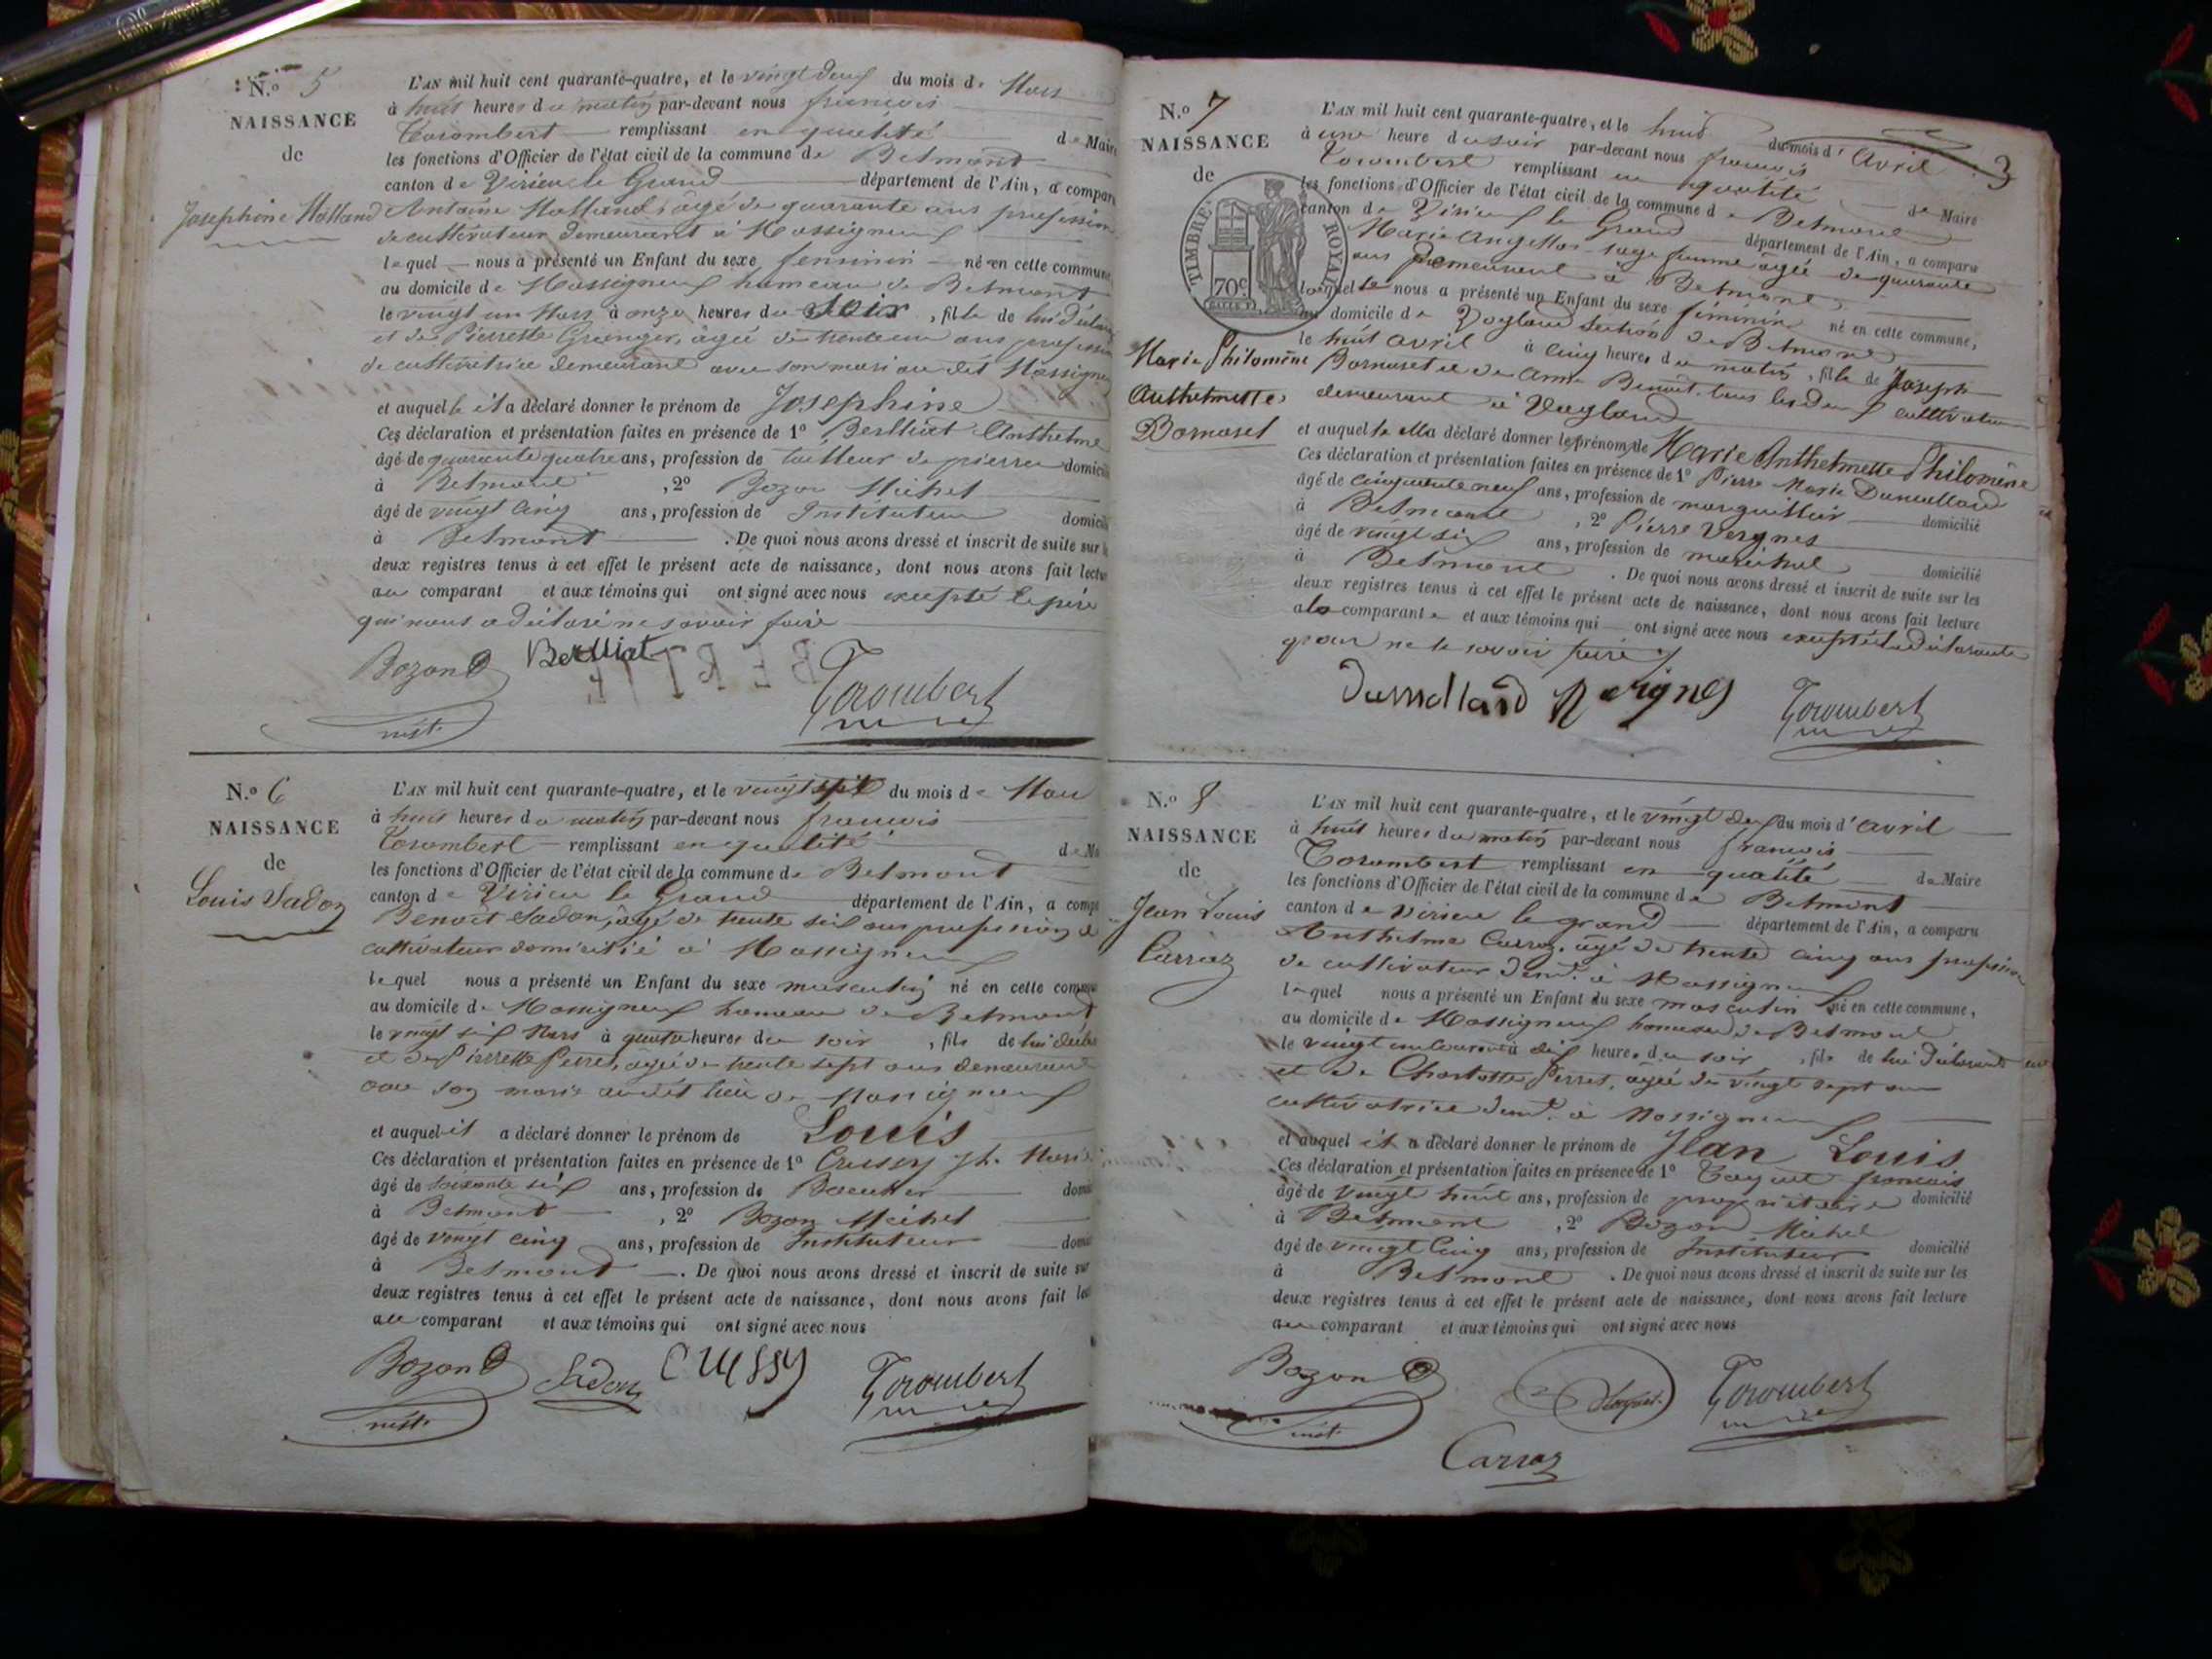 N.o 5
NAISSANCE
de
Josephine Molland
L'AN mil huit cent quarante-quatre, et le vingt deux du mois de Mars
à huit heures du matin par-devant nous françois
Torombert remplissant en qualité de Maire
les fonctions d'Officier de l'état civil de la commune de Belmont
canton de Virieu le Grand département de l'Ain, a comparu
Antoine Molland, âgé de quarante ans profession
de cultivateur demeurant à Massigneux
lequel nous a présenté un Enfant du sexe feminin né en cette commune
au domicile de Massigneux hameau de Belmont
le vingt un Mars à onze heures du Soir, fille de lui déclarant
et de Pierrette Granger, âgée de trente ans profession
de cultivatrice demeurant avec son mari au dit Massigneux
et auquelle il a déclaré donner le prénom de Josephine
Ces déclaration et présentation faites en présence de 1o Berlliat Anthelme
âgé de quarante quatre ans, profession de tailleur de pierre domicilié
à Belmont, 2o Bozon Michel
âgé de vingt cinq ans, profession de Instituteur domicilié
à Belmont. De quoi nous avons dressé et inscrit de suite sur
deux registres tenus à cet effet le présent acte de naissance, dont nous avons fait lecture
au comparant et aux témoins qui ont signé avec nous excepté le père
qui nous a déclaré ne savoir faire
Bozon Berlliat Torombert
inst.
N.o 6
NAISSANCE
de
Louis Sadon
L'AN mil huit cent quarante-quatre, et le vingt sept du mois de Mars
à huit heures du matin par-devant nous françois
Torombert remplissant en qualité de
les fonctions d'Officier de l'état civil de la commune de Belmont
canton de Virieu le Grand département de l'Ain, a comparu
Benoit Sadon, âgé de trente six ans profession de
cultivateur domicilié à Massigneux
lequel nous a présenté un Enfant du sexe masculin né en cette commune
au domicile de Massigneux hameau de Belmont
le vingt six Mars à quatre heures du soir, fils de lui
et de Pierrette Perret, agée de trente sept ans demeurant
avec son mari audit lieu de Massigneux
et auquel il a déclaré donner le prénom de Louis
Ces déclaration et présentation faites en présence de 1o Cussy Jh. Marie
âgé de soixante six ans, profession de
à Belmont, 2o Bozon Michel
âgé de vingt cinq ans, profession de Instituteur
à Belmont. De quoi nous avons dressé et inscrit de suite sur
deux registres tenus à cet effet le présent acte de naissance, dont nous avons fait
au comparant et aux témoins qui ont signé avec nous
Bozon Sadon Cussy Torombert
inst.
3
N.o 7
NAISSANCE
de
TIMBRE ROYAL
70c
Marie Philomène
Anthelmette
Bornaset
L'AN mil huit cent quarante-quatre, et le huit du mois d'Avril
à une heure du soir par-devant nous françois
Torombert remplissant en qualité de Maire
les fonctions d'Officier de l'état civil de la commune de Belmont
canton de Virieu le Grand département de l'Ain, a comparu
Marie sage femme âgée de quarante
ans demeurant à Belmont
laquelle nous a présenté un Enfant du sexe féminin né en cette commune,
au domicile de Vogland section de Belmont
le huit avril à cinq heures du matin, fille de Joseph
Bornaset et de Anne Benoit tous les deux cultivateurs
demeurant à Vogland
et auquelle elle a déclaré donner le prénom de Marie Anthelmette Philomène
Ces déclaration et présentation faites en présence de 1o Pierre Marie Dumolland
âgé de cinquante neuf ans, profession de marguillier domicilié
à Belmont, 2o Pierre Vergnes
âgé de vingt six ans, profession de maréchal domicilié
à Belmont. De quoi nous avons dressé et inscrit de suite sur les
deux registres tenus à cet effet le présent acte de naissance, dont nous avons fait lecture
à la comparante et aux témoins qui ont signé avec nous excepté la déclarante
pour ne le savoir faire
Dumolland Vergnes Torombert
N.o 8
NAISSANCE
de
Jean Louis
Carraz
L'AN mil huit cent quarante-quatre, et le vingt deux du mois d'avril
à huit heures du matin par-devant nous françois
Torombert remplissant en qualité de Maire
les fonctions d'Officier de l'état civil de la commune de Belmont
canton de virieu le grand département de l'Ain, a comparu
Anthelme Carraz, âgé de trente cinq ans profession
de cultivateur demt. à Massigneux
lequel nous a présenté un Enfant du sexe masculin né en cette commune,
au domicile de Massigneux hameau de Belmont
le vingt un courant à dix heures du soir, fils de lui déclarant
et de Charlotte Perret, âgée de vingt sept ans
cultivatrice demt. à Massigneux
et auquel il a déclaré donner le prénom de Jean Louis
Ces déclaration et présentation faites en présence de 1o françois
âgé de vingt huit ans, profession de propriétaire domicilié
à Belmont, 2o Bozon Michel
âgé de vingt cinq ans, profession de Instituteur domicilié
à Belmont. De quoi nous avons dressé et inscrit de suite sur les
deux registres tenus à cet effet le présent acte de naissance, dont nous avons fait lecture
au comparant et aux témoins qui ont signé avec nous
Bozon Torombert
inst.
Carraz